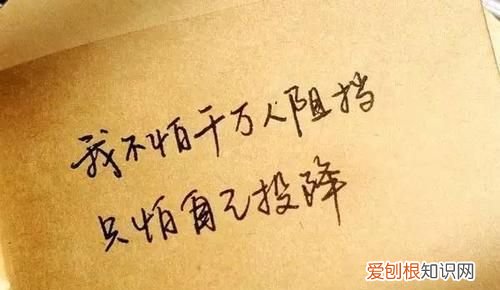 我不怕千万人阻挡
只怕自己投降
爱刨根知识网